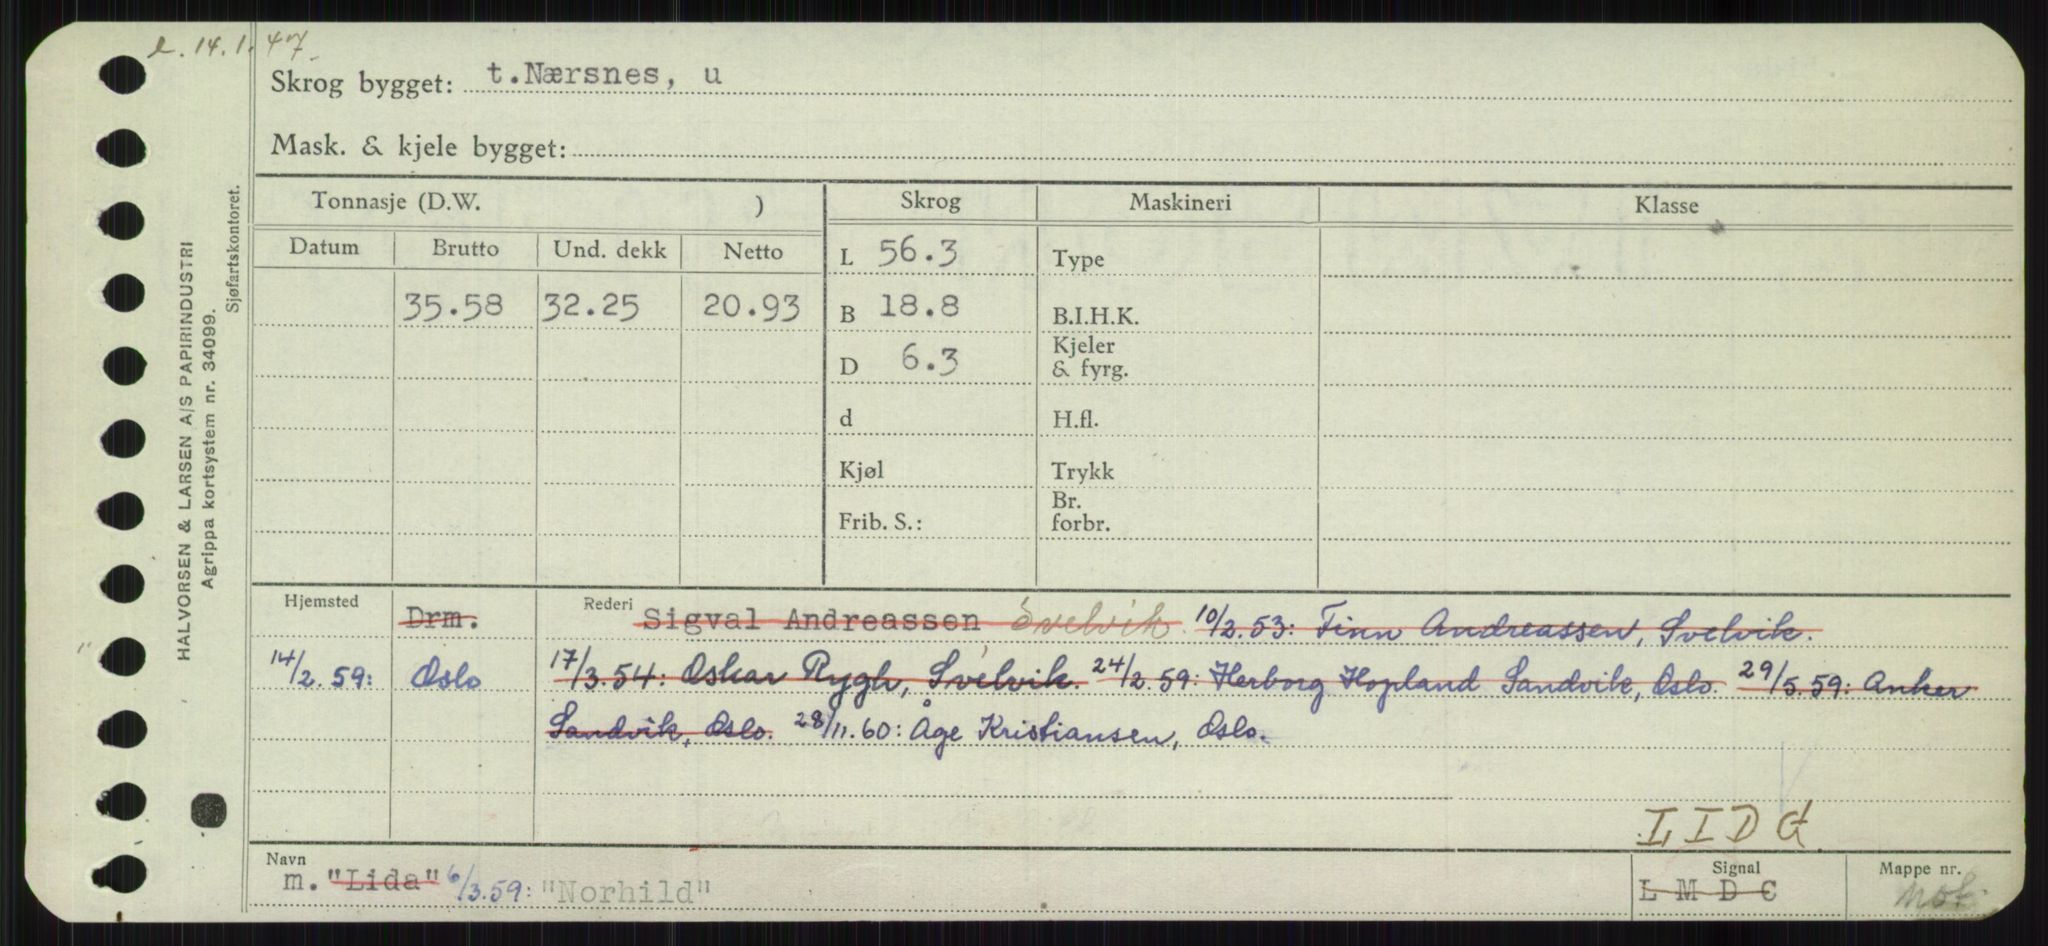 l. 14.1.47.
Skrog bygget: t.Nærsnes, u
Mask. & kjele bygget:
HALVORSEN & LARSEN A/S PAPIRINDUSTRI
Agrippa kortsystem nr. 34099.
Sjøfartskontoret.
Tonnasje (D.W. ) Skrog Maskineri Klasse
Datum Brutto Und. dekk Netto L 56.3 Type
35.58 32.25 20.93 B 18.8 B.I.H.K.
D 6.3 Kjeler & fyrg.
d H.fl.
Kjøl Trykk
Frib. S.: Br. forbr.
Hjemsted Drm. Rederi Sigval Andreassen Svelvik. 10/2.53: Finn Andreassen, Svelvik.
14/2.59: Oslo 17/3.54: Oskar Rygh, Svelvik. 24/2.59: Herborg Hopland Sandvik, Oslo. 29/5.59: Anker
Sandvik, Oslo. 28/11.60: Åge Kristiansen, Oslo.
L I D G
Navn Signal Mappe nr.
m. "Lida" 6/3.59: "Norhild" L M D C mot.